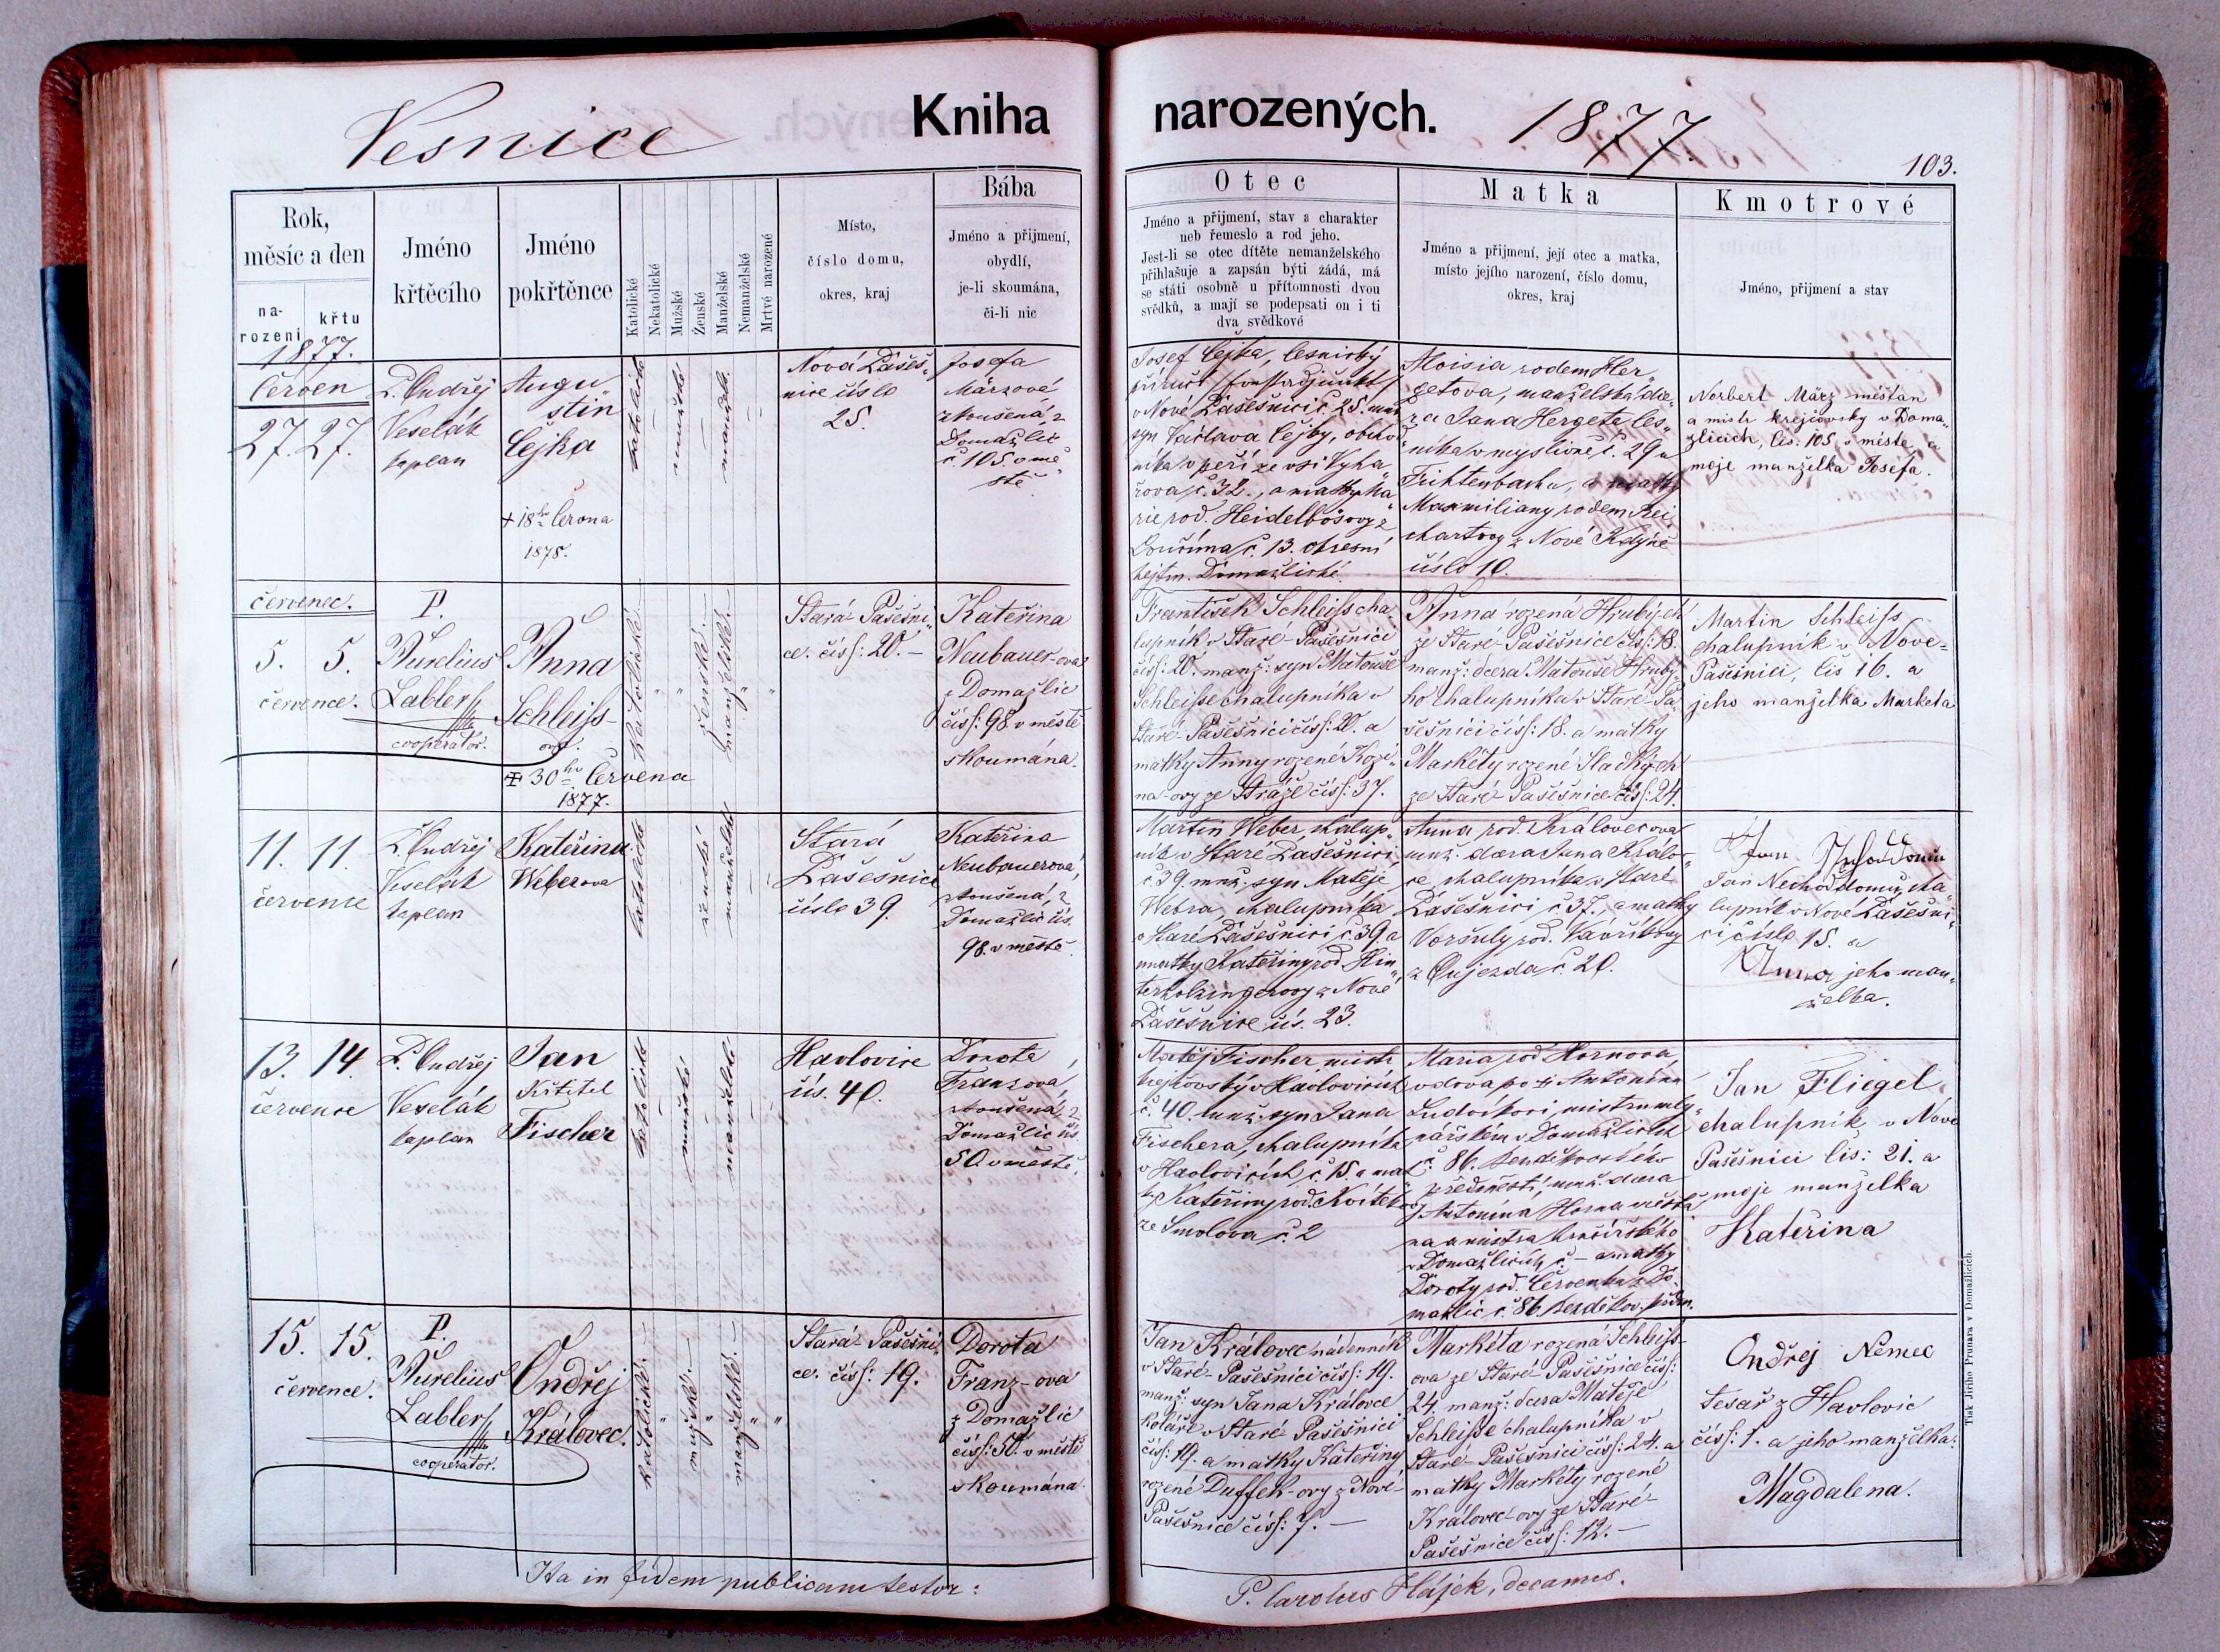 Vesnice
Kniha
narozených.
1877.
103.
Rok,
měsíc a den
na-
rozeni
křtu
Jméno
křtěcího
Jméno
pokřtěnce
Katolické
Nekatolické
Mužské
Ženské
Manželské
Nemanželské
Mrtvé narozené
Místo,
číslo domu,
okres, kraj
Bába
Jméno a přijmení,
obydlí,
je-li skoumána,
či-li nic
Otec
Jméno a přijmení, stav a charakter
neb řemeslo a rod jeho.
Jest-li se otec dítěte nemanželského
přihlašuje a zapsán býti žádá, má
se státi osobně u přítomnosti dvou
svědků, a mají se podepsati on i ti
dva svědkové
Matka
Jméno a přijmení, její otec a matka,
místo jejího narození, číslo domu,
okres, kraj
Kmotrové
Jméno, přijmení a stav
1877.
Červen
27. 27.
P. Ondřej
Veselák
kaplan
Augu„
stin
Čejka
+ 18ho Června
1878.
katolické
mužské
manžels.
Nová Pašeš„
nice číslo
25.
Josefa
Märzová,
zkoušená, z
Domažlic
č. 105. v mě„
stě
Josef Čejka, lesnický
příručí /forstadjunkt/
v Nové Pašešnici č. 25. manž
syn Václava Čejky, obchod
níka v peří ze vsi
č. 32., a matky Ma„
rie rod. Heidelbösovy z
Loučima č. 13. okresní
hejtm. Domažlické.
Aloisia rodem Her„
getova, manželská dce„
ra Jana Hergeta les„
níka v myslivně č. 29 u
Fichtenbachu, a matky
Maxmiliany rodem Rei„
chartovy z Nové Kdýně
číslo 10.
Norbert März měšťan
a mistr krejčovský v Doma„
žlicích, čís: 105 v městě, a
moje manželka Josefa.
červenec.
5. 5.
července.
P.
Aurelius
Labler
cooperátor.
Anna
Schleiss-
ová.
30ho Července
1877.
katolické.
ženské.
manželské.
Stará Pašešni„
ce. čís: 20. —
Kateřina
Neubauer-ova
z Domažlic
čís: 98 v městě
skoumána.
František Schleiss cha„
lupník v Staré-Pašešnici
čís: 20. manž: syn Matouše
Schleisse chalupníka v
Staré-Pašešnici čís: 20. a
matky Anny rozené Kozi„
na-ovy ze Stráže čís: 37.
Anna rozená Hrubých
ze Staré-Pašešnice čís: 18.
manž: dcera Matouše Hrubý
ho chalupníka v Staré-Pa„
šešnici čís: 18. a matky
Markéty rozené Sladkých
ze Staré-Pašešnice čís: 24.
Martin Schleiss
chalupník v Nove=
Pašešnici, čís 16. a
jeho manželka Marketa
11. 11.
července
P. Ondřej
Veselák
kaplan
Kateřina
Weberova
katolické
ženské
manželské
Stará
Pašešnice
číslo 39.
Kateřina
Neubauerová,
zkoušená, z
Domažlic čís.
98. v městě.
Martin Weber, chalup„
ník v Staré Pašešnici,
č. 39. manž. syn Matěje
Webra, chalupníka
v Staré Pašešnici č. 39. a
matky Kateřiny rod. Hin„
terholzingerovy z Nové
Pašešnice čís. 23.
Anna rod. Královecova
manž. dcera Jana Králov„
ce, chalupníka v Staré
Pašešnici č. 37., a matky
Voršuly rod. Vavříkovy
z Oujezda č. 20.
Jan Nechoďdomu
Jan Nechoďdomů, cha„
lupník v Nové Pašešni„
ci číslo 15. a
Anna jeho man„
želka.
13. 14.
července
P. Ondřej
Veselák
kaplan
Jan
Křtitel
Fischer
katolické
mužské
manželské
Havlovice
čís. 40.
Dorota
Franzová,
zkoušená, z
Domažlic čís.
50. v městě.
Matěj Fischer, mistr
krejčovský v Havlovicích
č. 40. manž. syn Jana
Fischera, chalupníka
v Havlovicích č. 15. a mat„
ky Kateřiny rod. Kvítek
ze Smolova č. 2
Maria rod. Hornova,
vdova po Antonínu
Ludvíkovi, mistru mly„
nářském v Domažlicích
č. 86. Bezděkovského
předměstí, manž. dcera
Antonína Horna měšťa„
na a mistra hrnčířského
v Domažlicích, č. – a matky
Doroty rod. Červenka z Do„
mažlic č. 86. bezděkov. předm.
Jan Fliegel.
chalupník v Nové
Pašešnici čís: 21. a
moje manželka
Kateřina
15. 15.
července.
P.
Aurelius
Labler
cooperátor.
Ondřej
Královec.
katolické.
mužské.
manželské.
Stará Pašešni„
ce. čís: 19.
Dorota
Franz-ova
z Domažlic
čís: 50. v městě
skoumána.
Jan Královec nádenník
v Staré-Pašešnici čís: 19.
manž: syn Jana Královce
koláře v Staré Pašešnici
čís: 19. a matky Kateřiny
rozené Duffek-ovy z Nové-
Pašešnice čís: 7. —
Markéta rozená Schleiss-
ova ze Staré-Pašešnice čís:
24. manž: dcera Matěje
Schleisse chalupníka v
Staré-Pašešnici čís: 24. a
matky Markéty rozené
Královec-ovy ze Staré-
Pašešnice čís: 12. —
Ondřej Němec
tesař z Havlovic
čís: 1. a jeho manželka:
Magdalena.
Ita in fidem publicam testor:
P. Carolus Hájek, decanus.
Tisk Jiřího Prunara v Domažlicích.